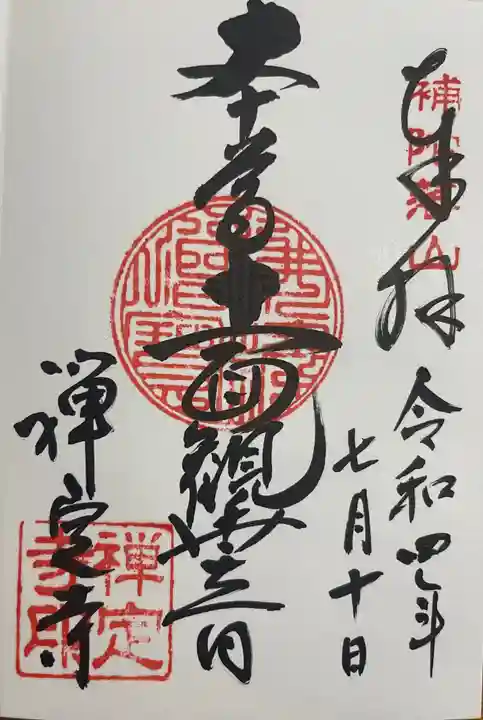 奉拝
補陀落山
令和四年
七月十日
本尊十一面観世音
禅定寺
禅定寺印